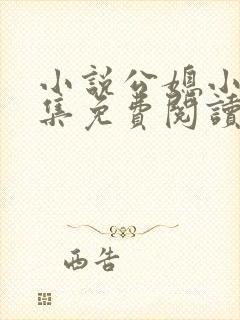 小說公媳小
集免費閱讀
西告